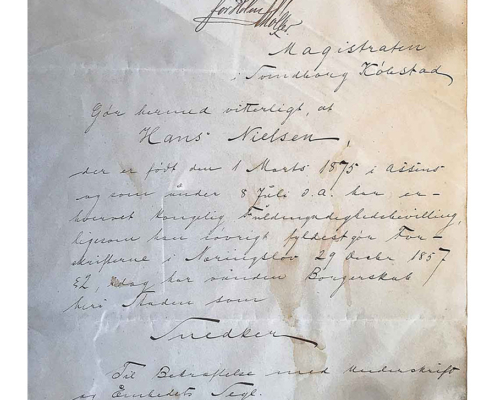 Magistraten
i Svendborg Købstad
Gør hermed vitterligt, at
Hans Nielsen,
der er født den 1 Marts 1875 i Assens
og som under 8 Juli d.A. har er-
hvervet kongelig Fuldmyndighedsbevilling,
ligesom han iøvrigt fyldestgør For-
skrifterne i Næringslov 29 Decbr 1857
§2, idag har vunden Borgerskab
her i Staden som
Snedker,
Til Bekræftelse med Underskrift
og Embedets Segl.